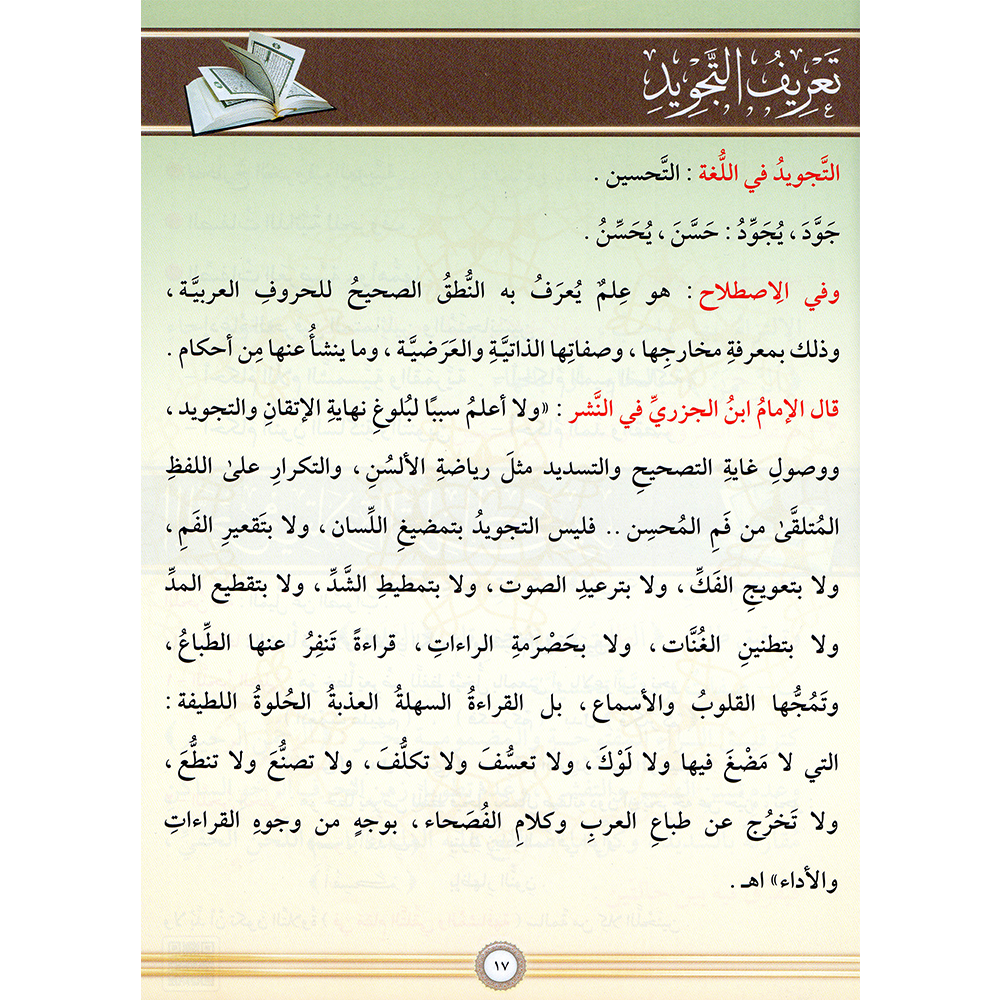 تَعْرِيفُ التَّجْوِيدِ
التَّجويدُ في اللُّغة : التَّحسين .
جَوَّدَ ، يُجَوِّدُ : حَسَّنَ ، يُحَسِّنُ .
وفي الِاصطلاح : هو عِلمٌ يُعرَفُ به النُّطقُ الصحيحُ للحروفِ العربيَّة ،
وذلك بمعرفةِ مخارجِها ، وصفاتِها الذاتيَّةِ والعَرَضيَّة ، وما ينشأُ عنها مِن أحكام .
قال الإمامُ ابنُ الجزريِّ في النَّشر : «ولا أعلمُ سببًا لبُلوغِ نهايةِ الإتقانِ والتجويد ،
ووصولِ غايةِ التصحيحِ والتسديد مثلَ رياضةِ الألسُنِ ، والتكرارِ علىٰ اللفظِ
المُتلقَّىٰ من فَمِ المُحسِن .. فليس التجويدُ بتمضيغِ اللِّسان ، ولا بتَقعيرِ الفَمِ ،
ولا بتعويجِ الفَكِّ ، ولا بترعيدِ الصوت ، ولا بتمطيطِ الشَّدِّ ، ولا بتقطيع المدِّ
ولا بتطنينِ الغُنَّات ، ولا بحَصْرَمةِ الراءاتِ ، قراءةً تَنفِرُ عنها الطِّباعُ ،
وتَمُجُّها القلوبُ والأسماع ، بل القراءةُ السهلةُ العذبةُ الحُلوةُ اللطيفة :
التي لا مَضْغَ فيها ولا لَوْكَ ، ولا تعسُّفَ ولا تكلُّفَ ، ولا تصنُّعَ ولا تنطُّعَ ،
ولا تَخرُج عن طباعِ العربِ وكلامِ الفُصَحاء ، بوجهٍ من وجوهِ القراءاتِ
والأداء» اهـ .
١٧